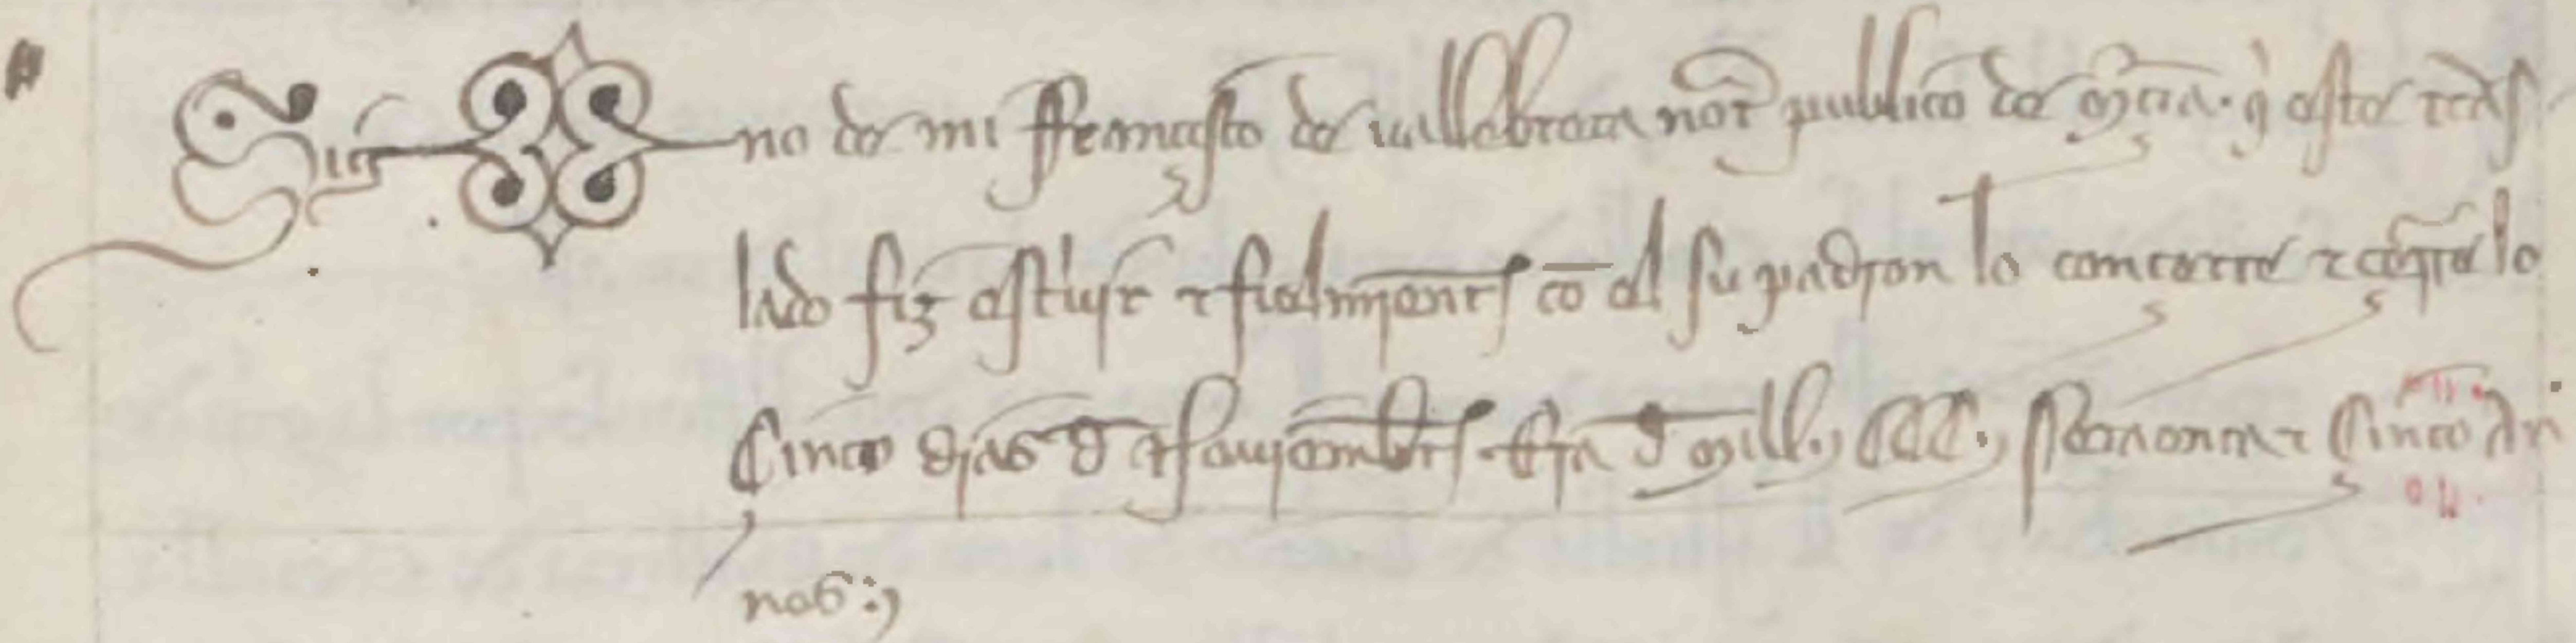 Sig no de mi ffrancisco de uallebrera not publico de mcia · q̇ este tras
lado fiz escͥuir ⁊ fielmientꝭ cō el su padron lo concerte ⁊ cōprͤ lo
Cinco dias d nouiembrꝭ · Era d mill ⁊ CCC · Setaenta ⁊ Cinco An
nos :,